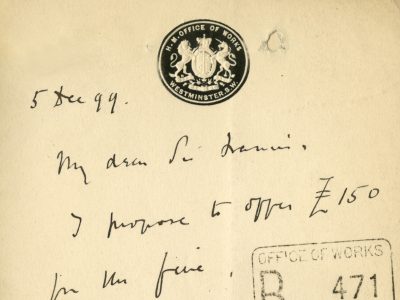 H.M. OFFICE OF WORKS
WESTMINSTER, S.W.
5 Dec 99.
My dear Sir Francis,
I propose to offer £150
for the five,
OFFICE OF WORKS
R 471